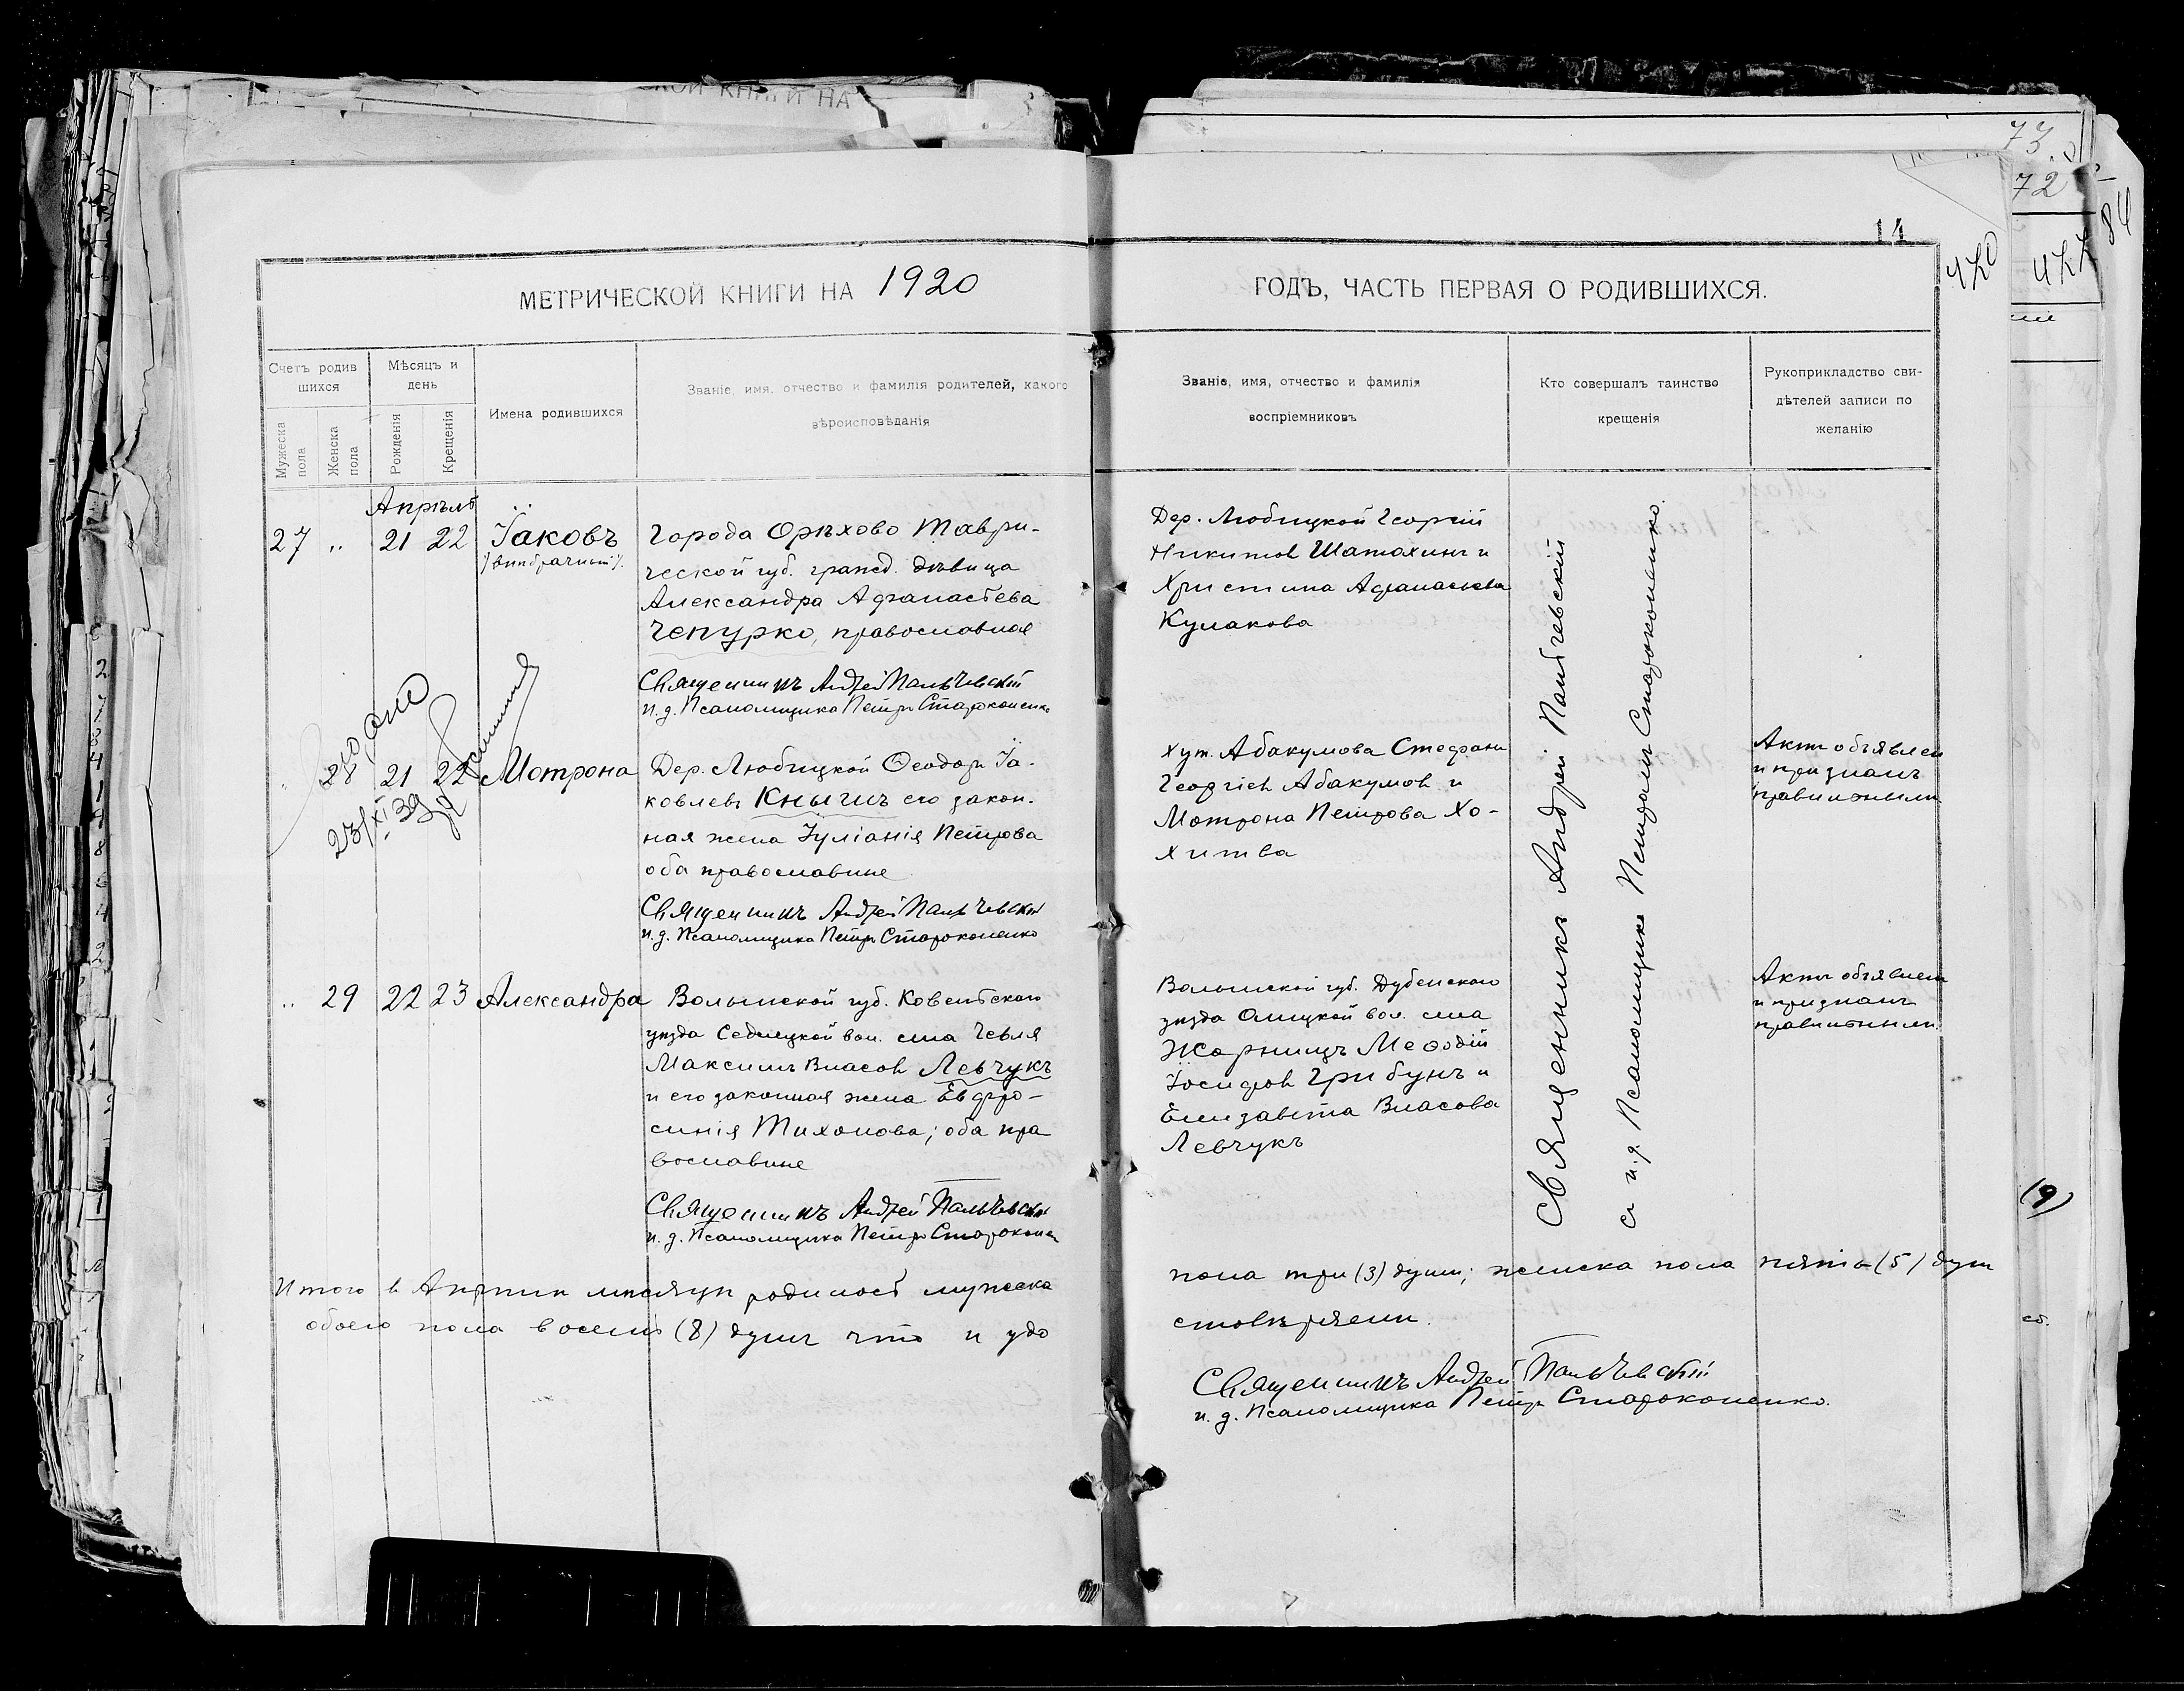 14
МЕТРИЧЕСКОЙ КНИГИ НА 1920
ГОДЪ, ЧАСТЬ ПЕРВАЯ О РОДИВШИХСЯ.
Счетъ родив
шихся
Мужеска пола
Женска пола
Мѣсяцъ и
день
Рожденія
Крещенія
Имена родившихся
Званіе, имя, отчество и фамилія родителей, какого
вѣроисповѣданія
Званіе, имя, отчество и фамилія
воспріемниковъ
Кто совершалъ таинство
крещенія
Рукоприкладство сви-
дѣтелей записи по
желанію
Апрѣль
27 „ 21 22 Іаковъ
Города Орѣхово Таври-
ческой губ. гражд. дѣвица
Александра Афанасьева
Чепурко, православная
Священникъ Андрей Пальчевскій
и. д. Псаломщика Петръ Староконенко
Дер. Любицкой Георгій
Никитов Шатохинъ и
Христина Афанасьева
Кулакова
28 21 22 Мотрона
23/XI 39
Дер. Любицкой Ѳеодоръ Іа-
ковлевъ Кнышъ его закон-
ная жена Іуліанія Петрова
оба православные
Священникъ Андрей Пальчевскій
и. д. Псаломщика Петръ Староконенко
Хут. Абакумова Стефанъ
Георгіев Абакумов и
Мотрона Петрова Хо-
хитва
Актъ объявлен
и признанъ
правильнымъ
„ 29 22 23 Александра
Волынской губ. Ковельского
уѣзда Седлицкой вол. села
Максимъ Власов Левчукъ
и его законная жена Евфро-
синія Тихонова; оба пра
вославные
Священникъ Андрей Пальчевскій
и. д. Псаломщика Петръ Староконен
Волынской губ. Дубенского
уѣзда Олицкой вол. села
Жорнищъ Меѳодій
Іосифов Грибунъ и
Елизавета Власова
Левчукъ
Актъ объявлен
и признанъ
правильнымъ
Священникъ Андрей Пальчевскій
съ и. д. Псаломщика Петромъ Староконенко.
Итого в Апрѣлѣ мѣсяцѣ родилось мужска
пола три (3) души; женска пола пять (5) душ
обоего пола восемь (8) душъ что и удо
стовѣряемъ.
Священникъ Андрей Пальчевскій
и. д. Псаломщика Петръ Староконенко.
73
72
84
(9)